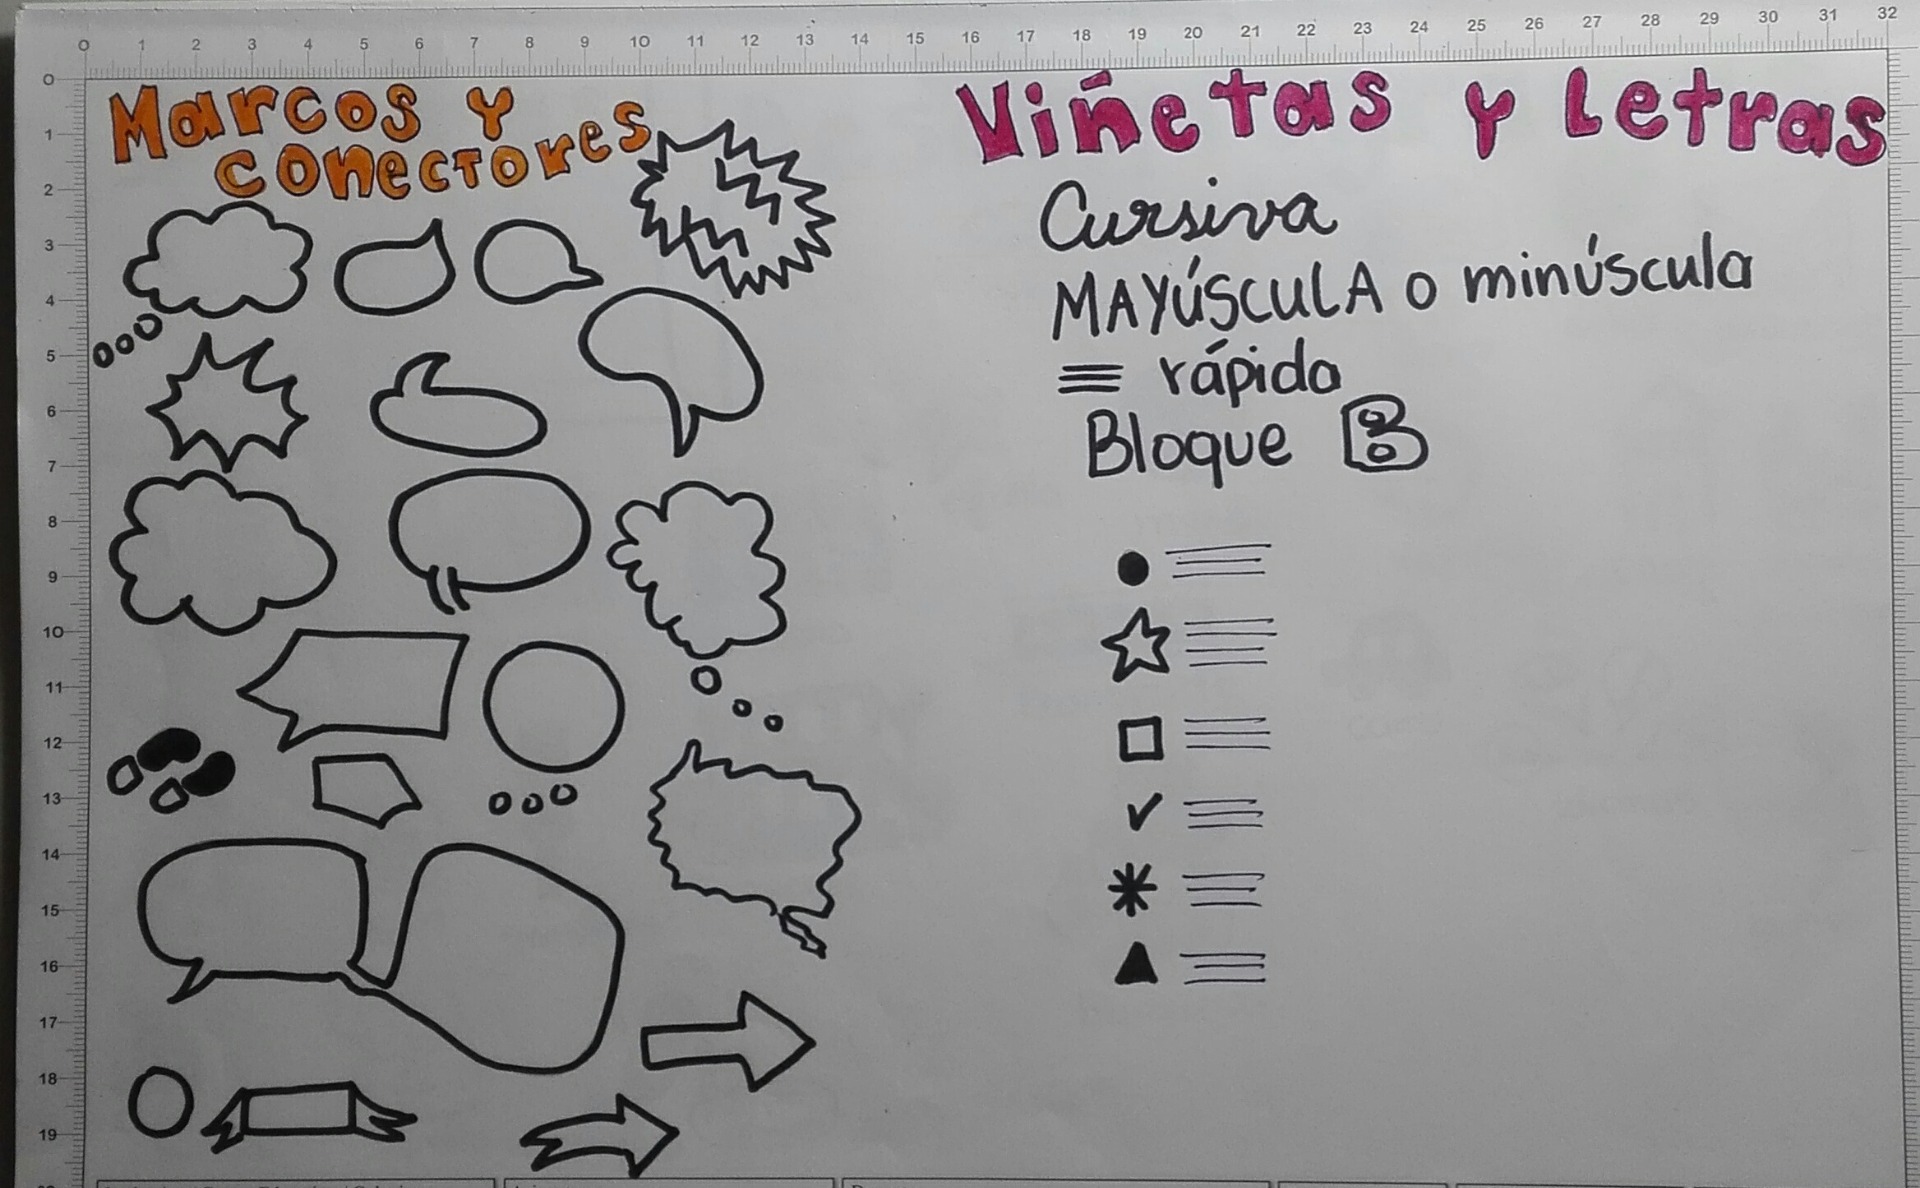 0 1 2 3 4 5 6 7 8 9 10 11 12 13 14 15 16 17 18 19 20 21 22 23 24 25 26 27 28 29 30 31 32
0
1
2
3
4
5
6
7
8
9
10
11
12
13
14
15
16
17
18
19
Marcos y
conectores
Viñetas y Letras
Cursiva
MAYÚSCULA o minúscula
rápido
Bloque B